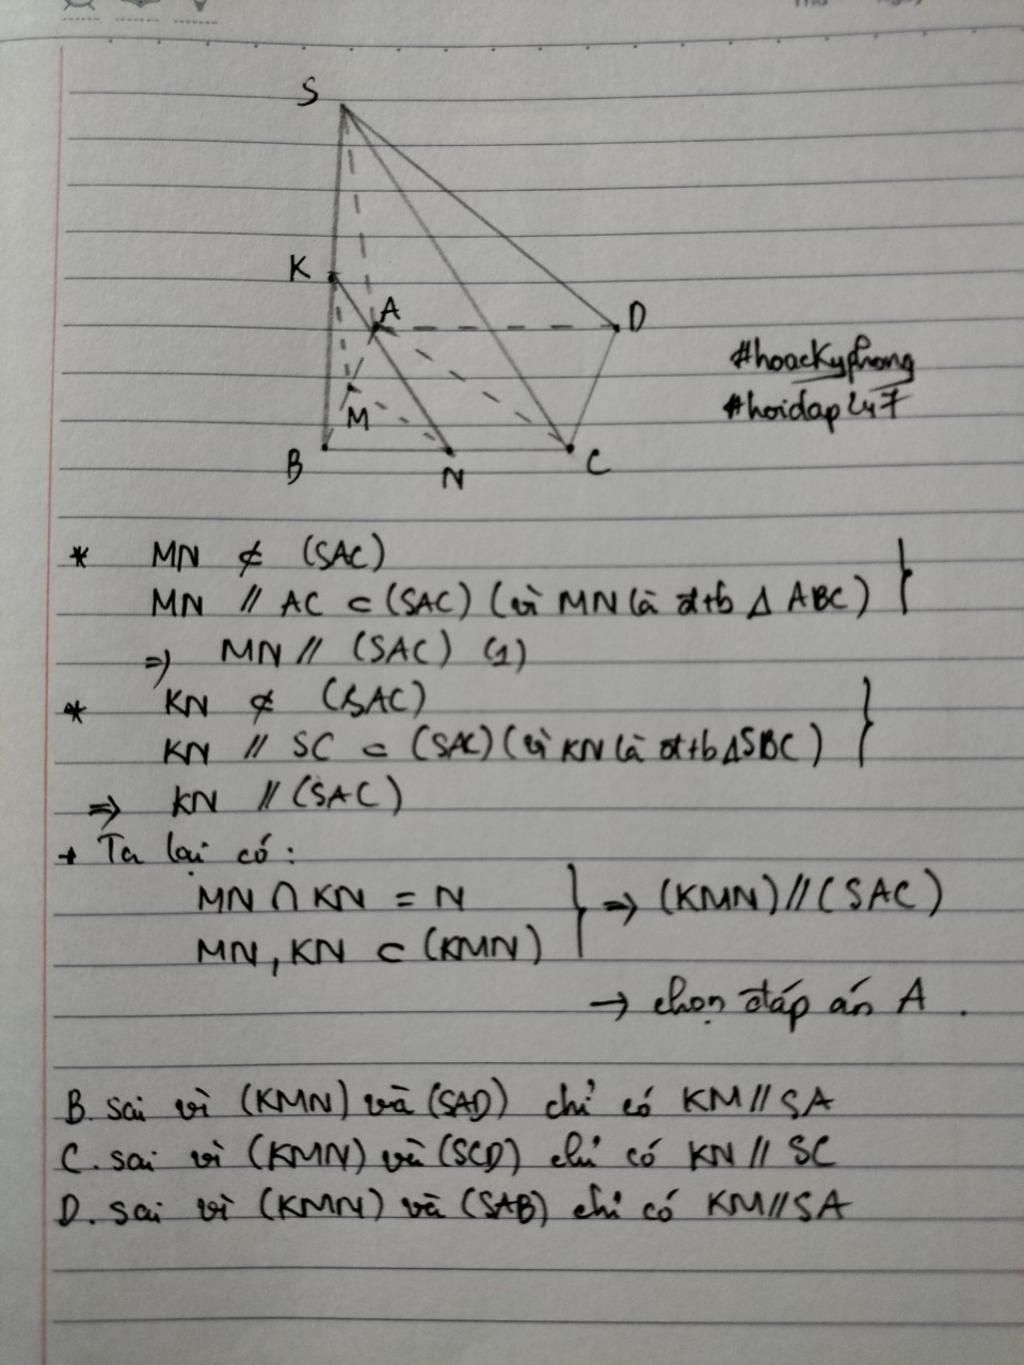 S
K
A
D
#hoackyphong
#hoidap247
M
B
N
C
* MN ⊄ (SAC)
MN // AC ⊂ (SAC) (vì MN là đtb Δ ABC)
=> MN // (SAC) (1)
* KN ⊄ (SAC)
KN // SC ⊂ (SAC) (vì KN là đtb ΔSBC)
=> KN // (SAC)
+ Ta lại có:
MN ∩ KN = N
=> (KMN) // (SAC)
MN, KN ⊂ (KMN)
→ chọn đáp án A.
B. sai vì (KMN) và (SAD) chỉ có KM // SA
C. sai vì (KMN) và (SCD) chỉ có KN // SC
D. sai vì (KMN) và (SAB) chỉ có KM // SA